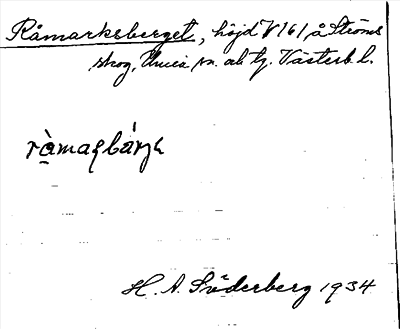 Råmarksberget, höjd V 161 å Ströms
skog, Umeå sn. o. tg. Västerb. l.
H. A. Söderberg 1934